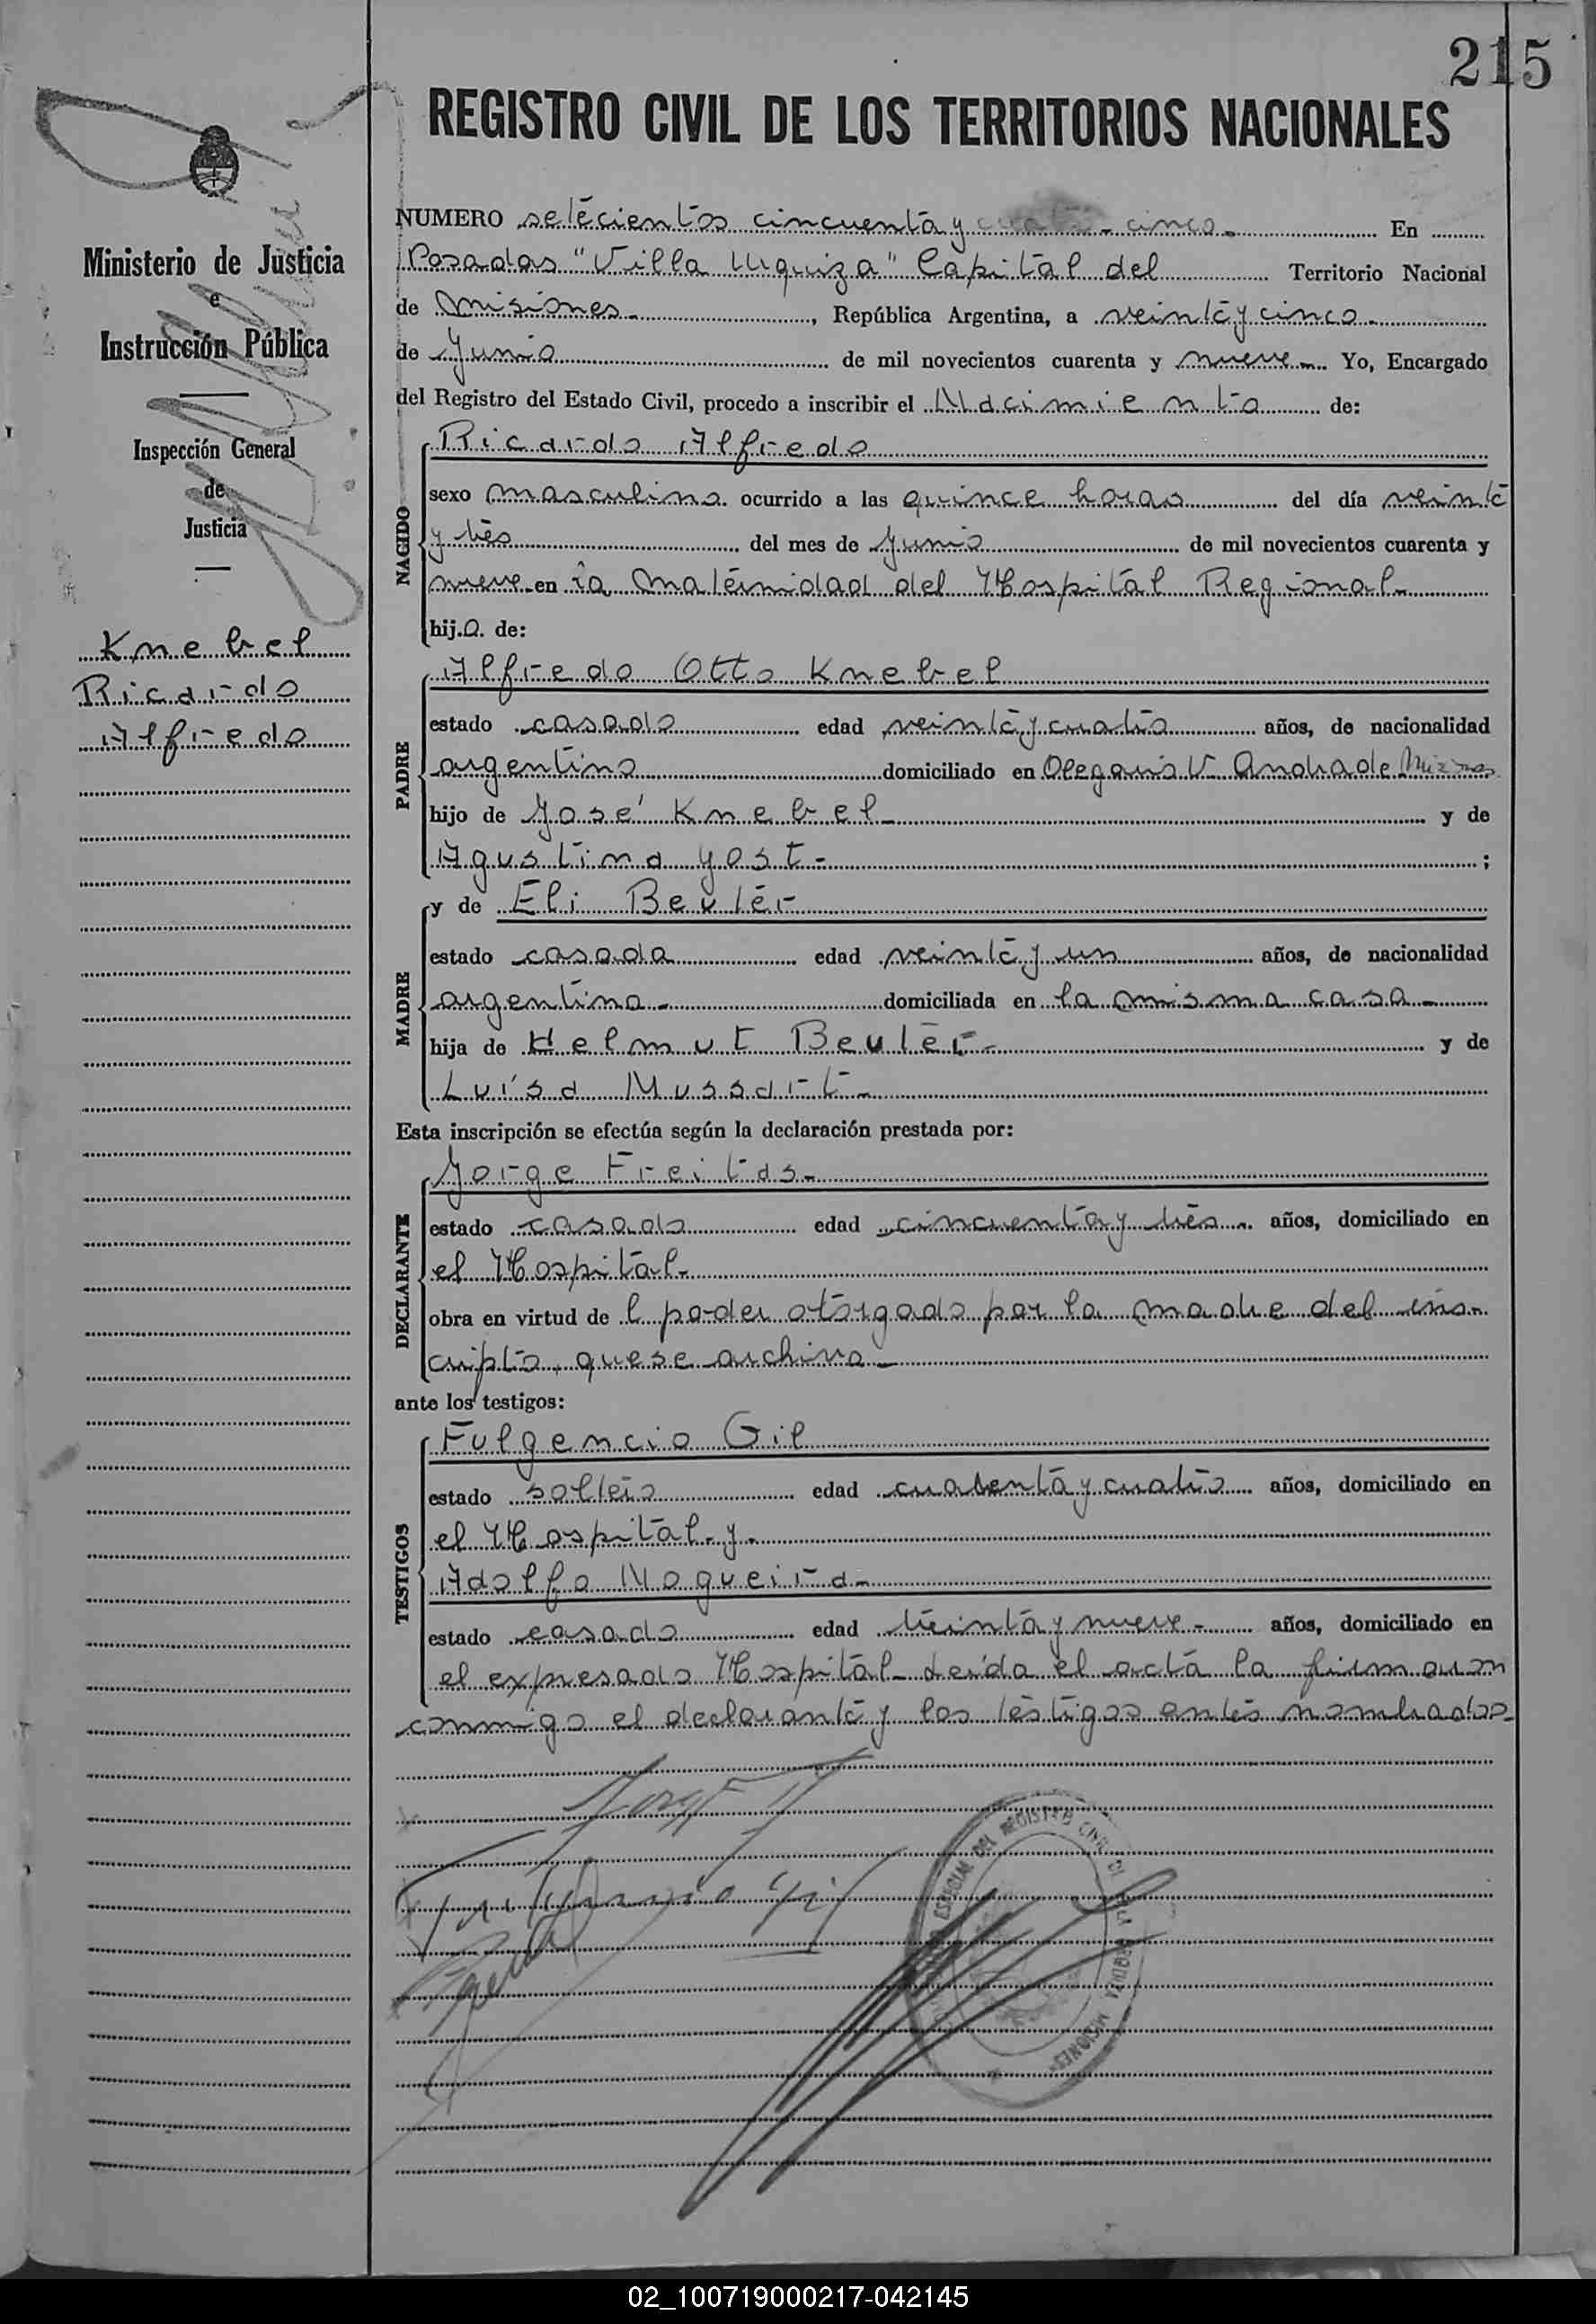 215
REGISTRO CIVIL DE LOS TERRITORIOS NACIONALES
Ministerio de Justicia
e
Instrucción Pública
Inspección General
de
Justicia
Knebel
Ricardo
Alfredo
NUMERO setecientos cincuenta y cinco. En
Posadas "Villa Urquiza" Capital del Territorio Nacional
de Misiones, República Argentina, a veinte y cinco
de Junio de mil novecientos cuarenta y nueve Yo, Encargado
del Registro del Estado Civil, procedo a inscribir el Nacimiento de:
NACIDO
Ricardo Alfredo
sexo masculino ocurrido a las quince horas del día veinte
y tres del mes de Junio de mil novecientos cuarenta y
nueve en la Maternidad del Hospital Regional
hij.o. de:
PADRE
Alfredo Otto Knebel
estado casado edad veinte y cuatro años, de nacionalidad
argentino domiciliado en Olegario V Andrade
hijo de José Knebel y de
Agustina Yost ;
MADRE
y de Eli Beuter
estado casada edad veinte y un años, de nacionalidad
argentina domiciliada en la misma casa
hija de Helmut Beuter y de
Luísa Mussart
Esta inscripción se efectúa según la declaración prestada por:
DECLARANTE
Jorge Freitas
estado casado edad cincuenta y tres años, domiciliado en
el Hospital
obra en virtud de l poder otorgado por la madre del ins-
cripto, que se archiva
ante los testigos:
TESTIGOS
Fulgencio Gil
estado soltero edad cuarenta y cuatro años, domiciliado en
el Hospital y
Adolfo Nogueira
estado casado edad treinta y nueve años, domiciliado en
el expresado Hospital Leída el acta la firmaron
conmigo el declarante y los testigos antes nombrados
Fulgencio Gil
ESPECIAL DEL REGISTRO CIVIL VILLA URQUIZA MISIONES
02_100719000217-042145